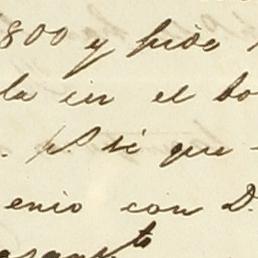 1800 y pide
la en el bo
si que
enio con D.